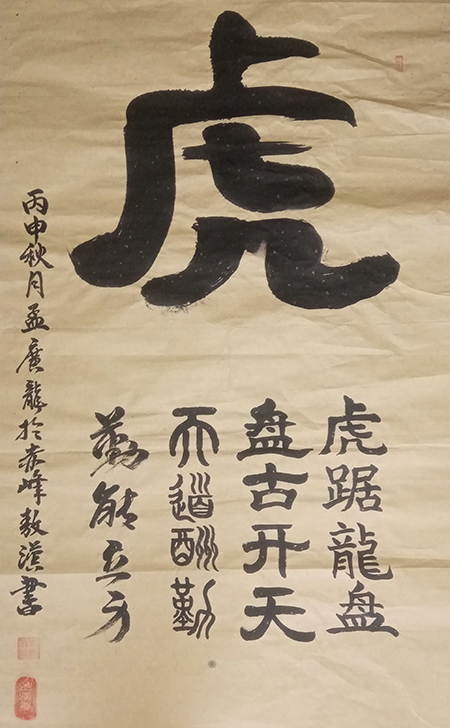 虎
虎踞龍盘
盘古开天
天道酬勤
能立
丙申秋月孟廣龍於赤峰敖漢書